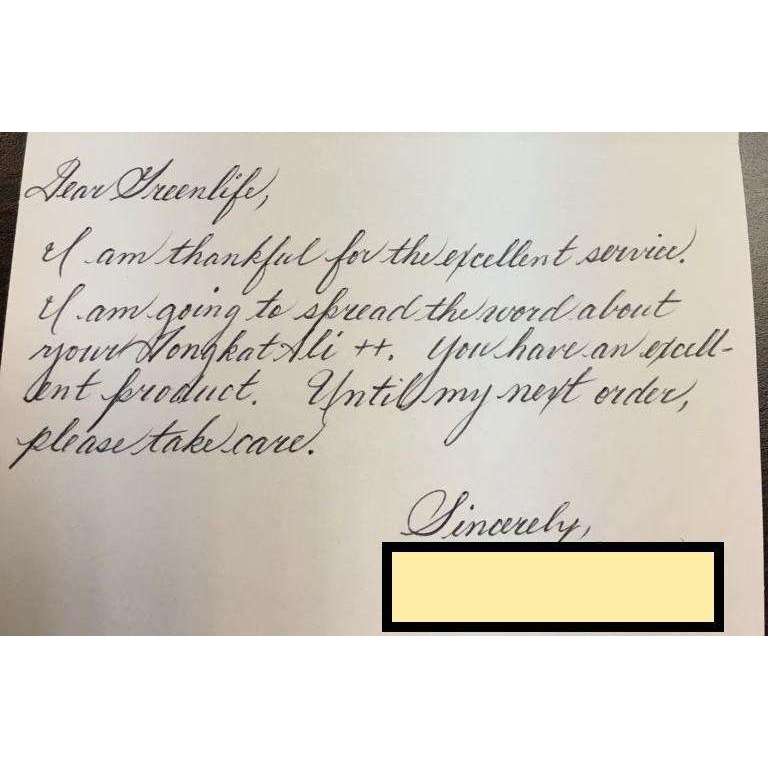 Dear Greenlife,
I am thankful for the excellent service.
I am going to spread the word about
your Tongkat Ali ++. You have an excell-
ent product. Until my next order,
please take care.
Sincerely,